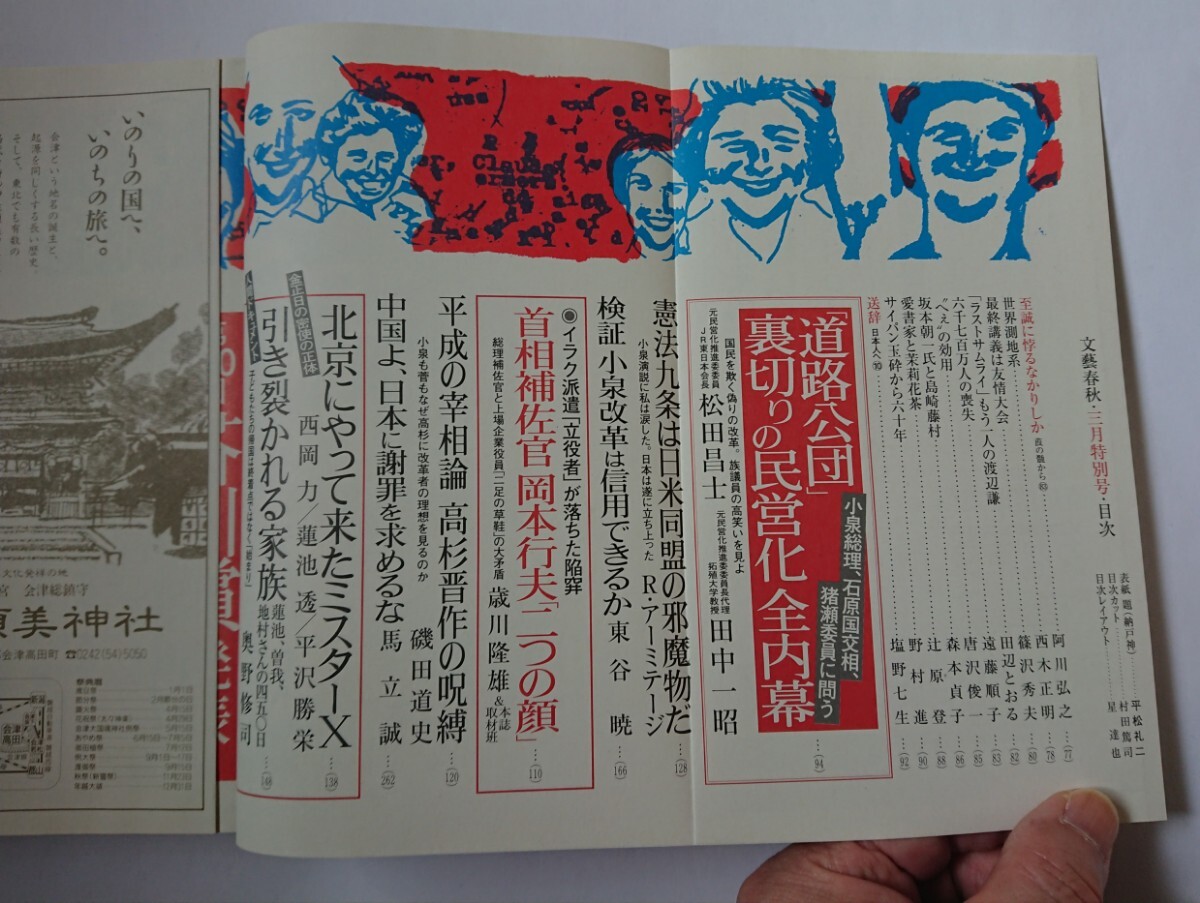 文藝春秋・三月特別号・目次
表紙 題(納戸神)
平松礼二
目次カット
村田篤司
目次レイアウト
星 達也
至誠に悖るなかりしか 葭の髄から㊿ 阿川弘之 (77)
世界測地系 西木正明 (78)
最終講義は友情大会 篠沢秀夫 (80)
「ラストサムライ」もう一人の渡辺謙 田辺とおる (82)
六千七百万人の喪失 遠藤順子 (83)
“え”の効用 唐沢俊一 (85)
坂本朝一氏と島崎藤村 森本貞子 (86)
愛書家と茉莉花茶 辻原登 (88)
サイパン玉砕から六十年 野村進 (90)
送辞 日本人へ⑩ 塩野七生 (92)
「道路公団」
裏切りの民営化 全内幕
小泉総理、石原国交相、
猪瀬委員に問う
(94)
国民を欺く偽りの改革。族議員の高笑いを見よ
元民営化推進委員
JR東日本会長
松田昌士
元民営化推進委員委員長代理
拓殖大学教授
田中一昭
憲法九条は日米同盟の邪魔物だ
小泉演説に私は涙した。日本は遂に立ち上った
R・アーミテージ (128)
検証 小泉改革は信用できるか 東谷 暁 (166)
◉イラク派遣「立役者」が落ちた陥穽
首相補佐官 岡本行夫「二つの顔」 (110)
総理補佐官と上場企業役員「二足の草鞋」の大矛盾
歳川隆雄&本誌取材班
平成の宰相論 高杉晋作の呪縛 (120)
小泉も菅もなぜ高杉に改革者の理想を見るのか
磯田道史
中国よ、日本に謝罪を求めるな 馬 立 誠 (262)
北京にやって来たミスターX (138)
金正日の密使の正体
西岡 力/蓮池 透/平沢勝栄
引き裂かれる家族 蓮池、曽我、
地村さんの四五〇日 (148)
子どもたちの帰国は終着点ではなく「始まり」
奥野修司
いのりの国へ、
いのちの旅へ。
会津という地名の誕生と、
起源を同じくする長い歴史。
そして、東北でも有数の
文化発祥の地
宮 会津総鎮守
須美神社
会津高田町 ☎0242(54)5050
祭典暦
会津
高田
郡山